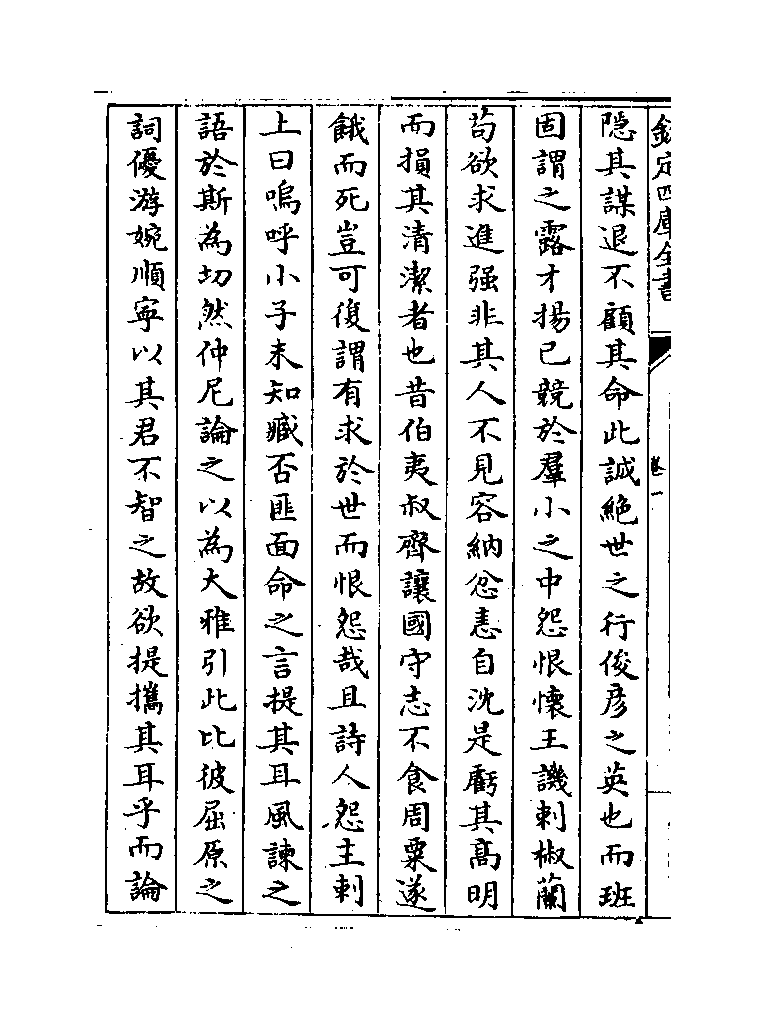 欽定四庫全書
卷一
隠其謀退不顧其命此誠絶世之行俊彦之英也而班
固謂之露才揚己競於羣小之中怨恨懷王譏刺椒蘭
茍欲求進強非其人不見容納忿恚自沈是虧其高明
而損其清潔者也昔伯夷叔齊讓國守志不食周粟遂
餓而死豈可復謂有求於世而恨怨哉且詩人怨主刺
上曰嗚呼小子未知臧否匪面命之言提其耳風諫之
語於斯為切然仲尼論之以為大雅引此比彼屈原之
詞優游婉順寧以其君不智之故欲提攜其耳乎而論